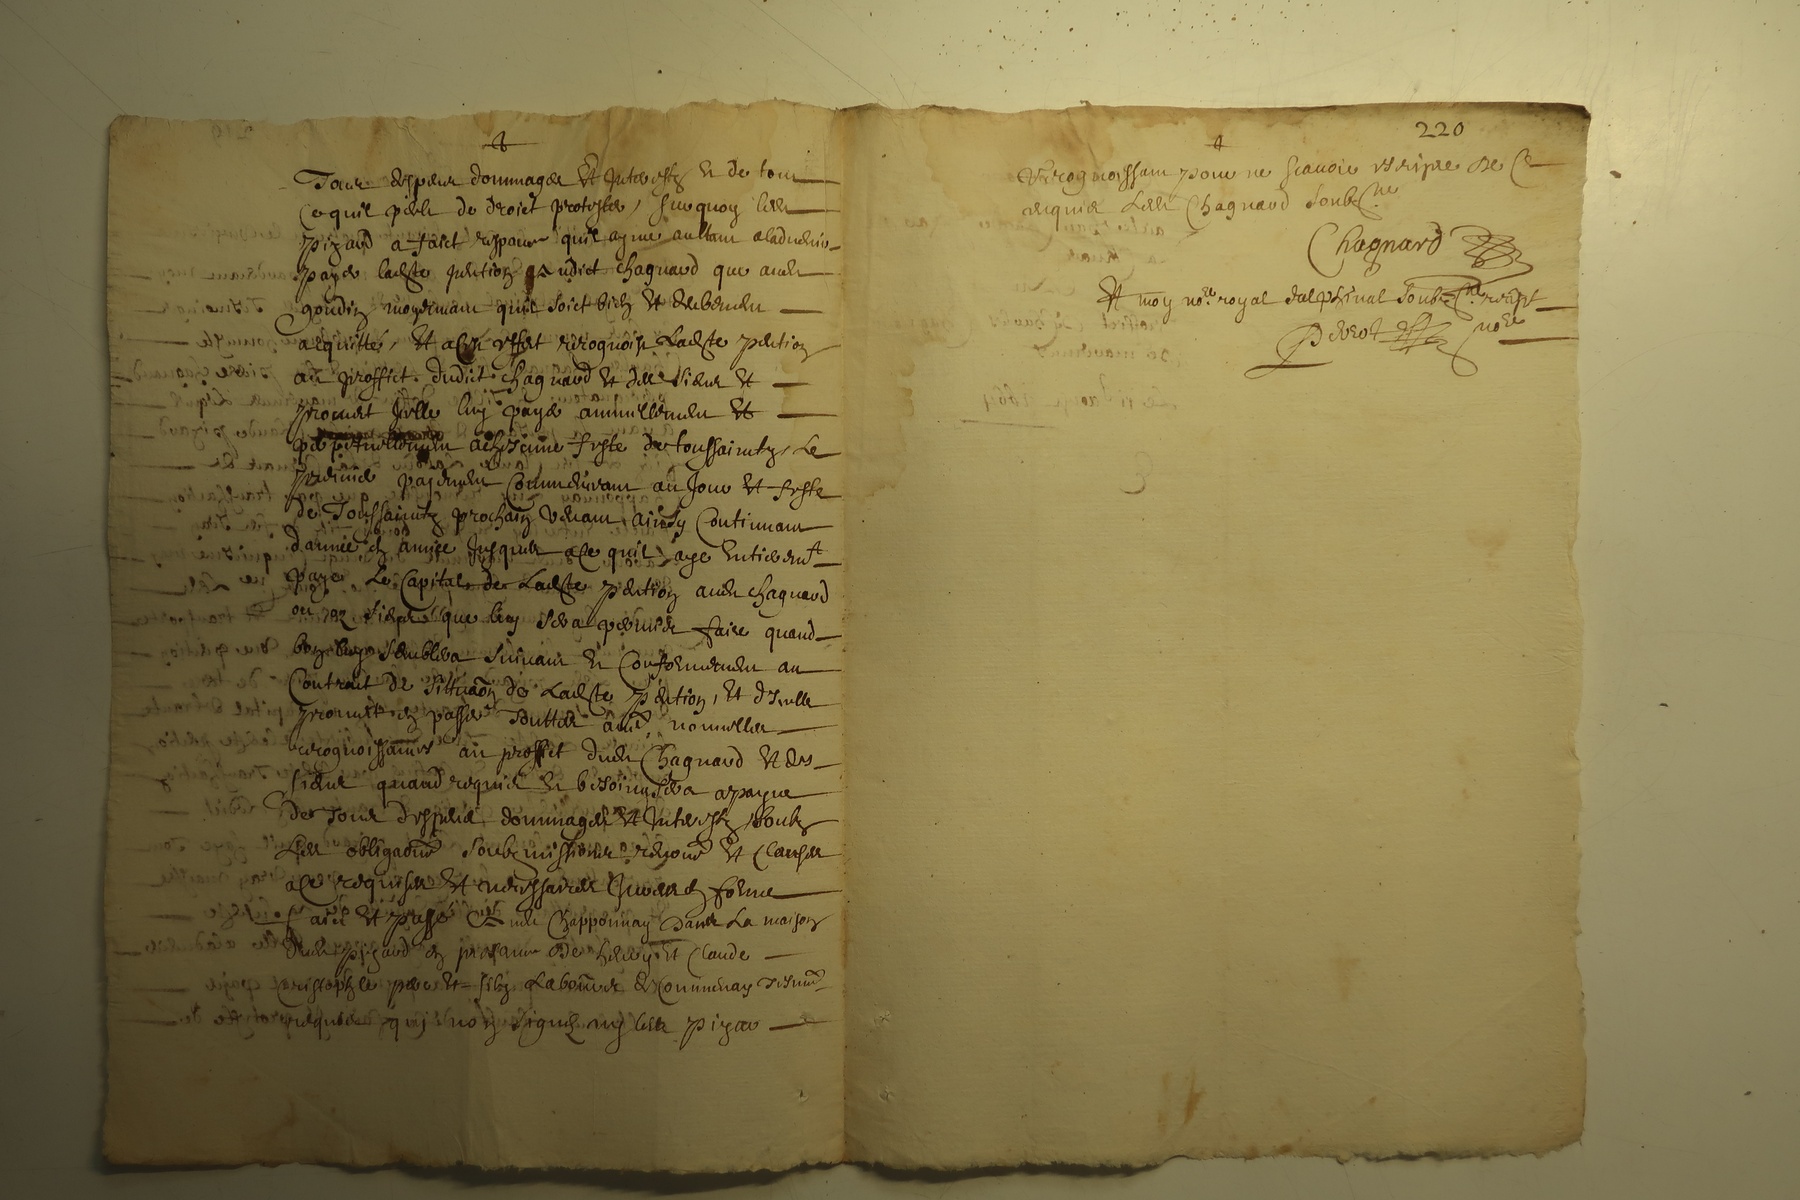 Tous despens dommages et Interestz et de tout
ce quil peult de droict proteste, surquoy ledit
pizard a faict responce quil ayme aultant aladvenir
payer ladite pention audict Chagnard que audit
goudin moyennant quil soict bien et deubement
acquitté, et a cest effect recognoist Ladite pention
au proffict dudict Chagnard et des siens et
promet Icelle luy payer annuellement et
perpetuellement a chescune feste de toussaintz, Le
premier payement Commensant au Jour et feste
de Toussaintz prochain venant ainsy Continuant
d'annee en annee Jusques a ce quil aye entieremt
payé Le Capital de Ladite pention audit Chagnard
ou es siens que luy sera permis faire quand
bon luy semblera suivant et Conformement au
Contract de de Ladite pention, et d'Icelle
promet en passer touttes nouvelles
recognoissances au proffict dudit Chagnard et des
siens quand requis et besoing sera a payne
de Tous despens dommages et Interestz, soubz
Les obligaons soubzmissions renons et Clauses
a ce requises et necessaires Jurees en forme
faict et passé audit Chapponnay dans La maison
dudit pizard en presence de et Claude
Cristophle pere et filz Laboureurs de Communay tesmoings
requis qui nont signé ny ledit pizar
recognoissant pour ne scavoir escripre de ce
requis Ledit Chagnard soubzné
Chagnard
Et moy nore royal dalphinal soubzné recept
nore
220